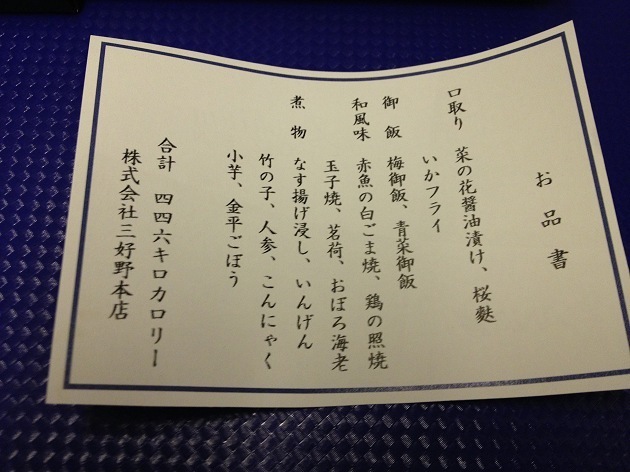 お品書
口取り 菜の花醤油漬け、桜麩
いかフライ
御飯 梅御飯、青菜御飯
和風味 赤魚の白ごま焼、鶏の照焼
玉子焼、茗荷、おぼろ海老
煮物 なす揚げ浸し、いんげん
竹の子、人参、こんにゃく
小芋、金平ごぼう
合計 四四六キロカロリー
株式会社三好野本店